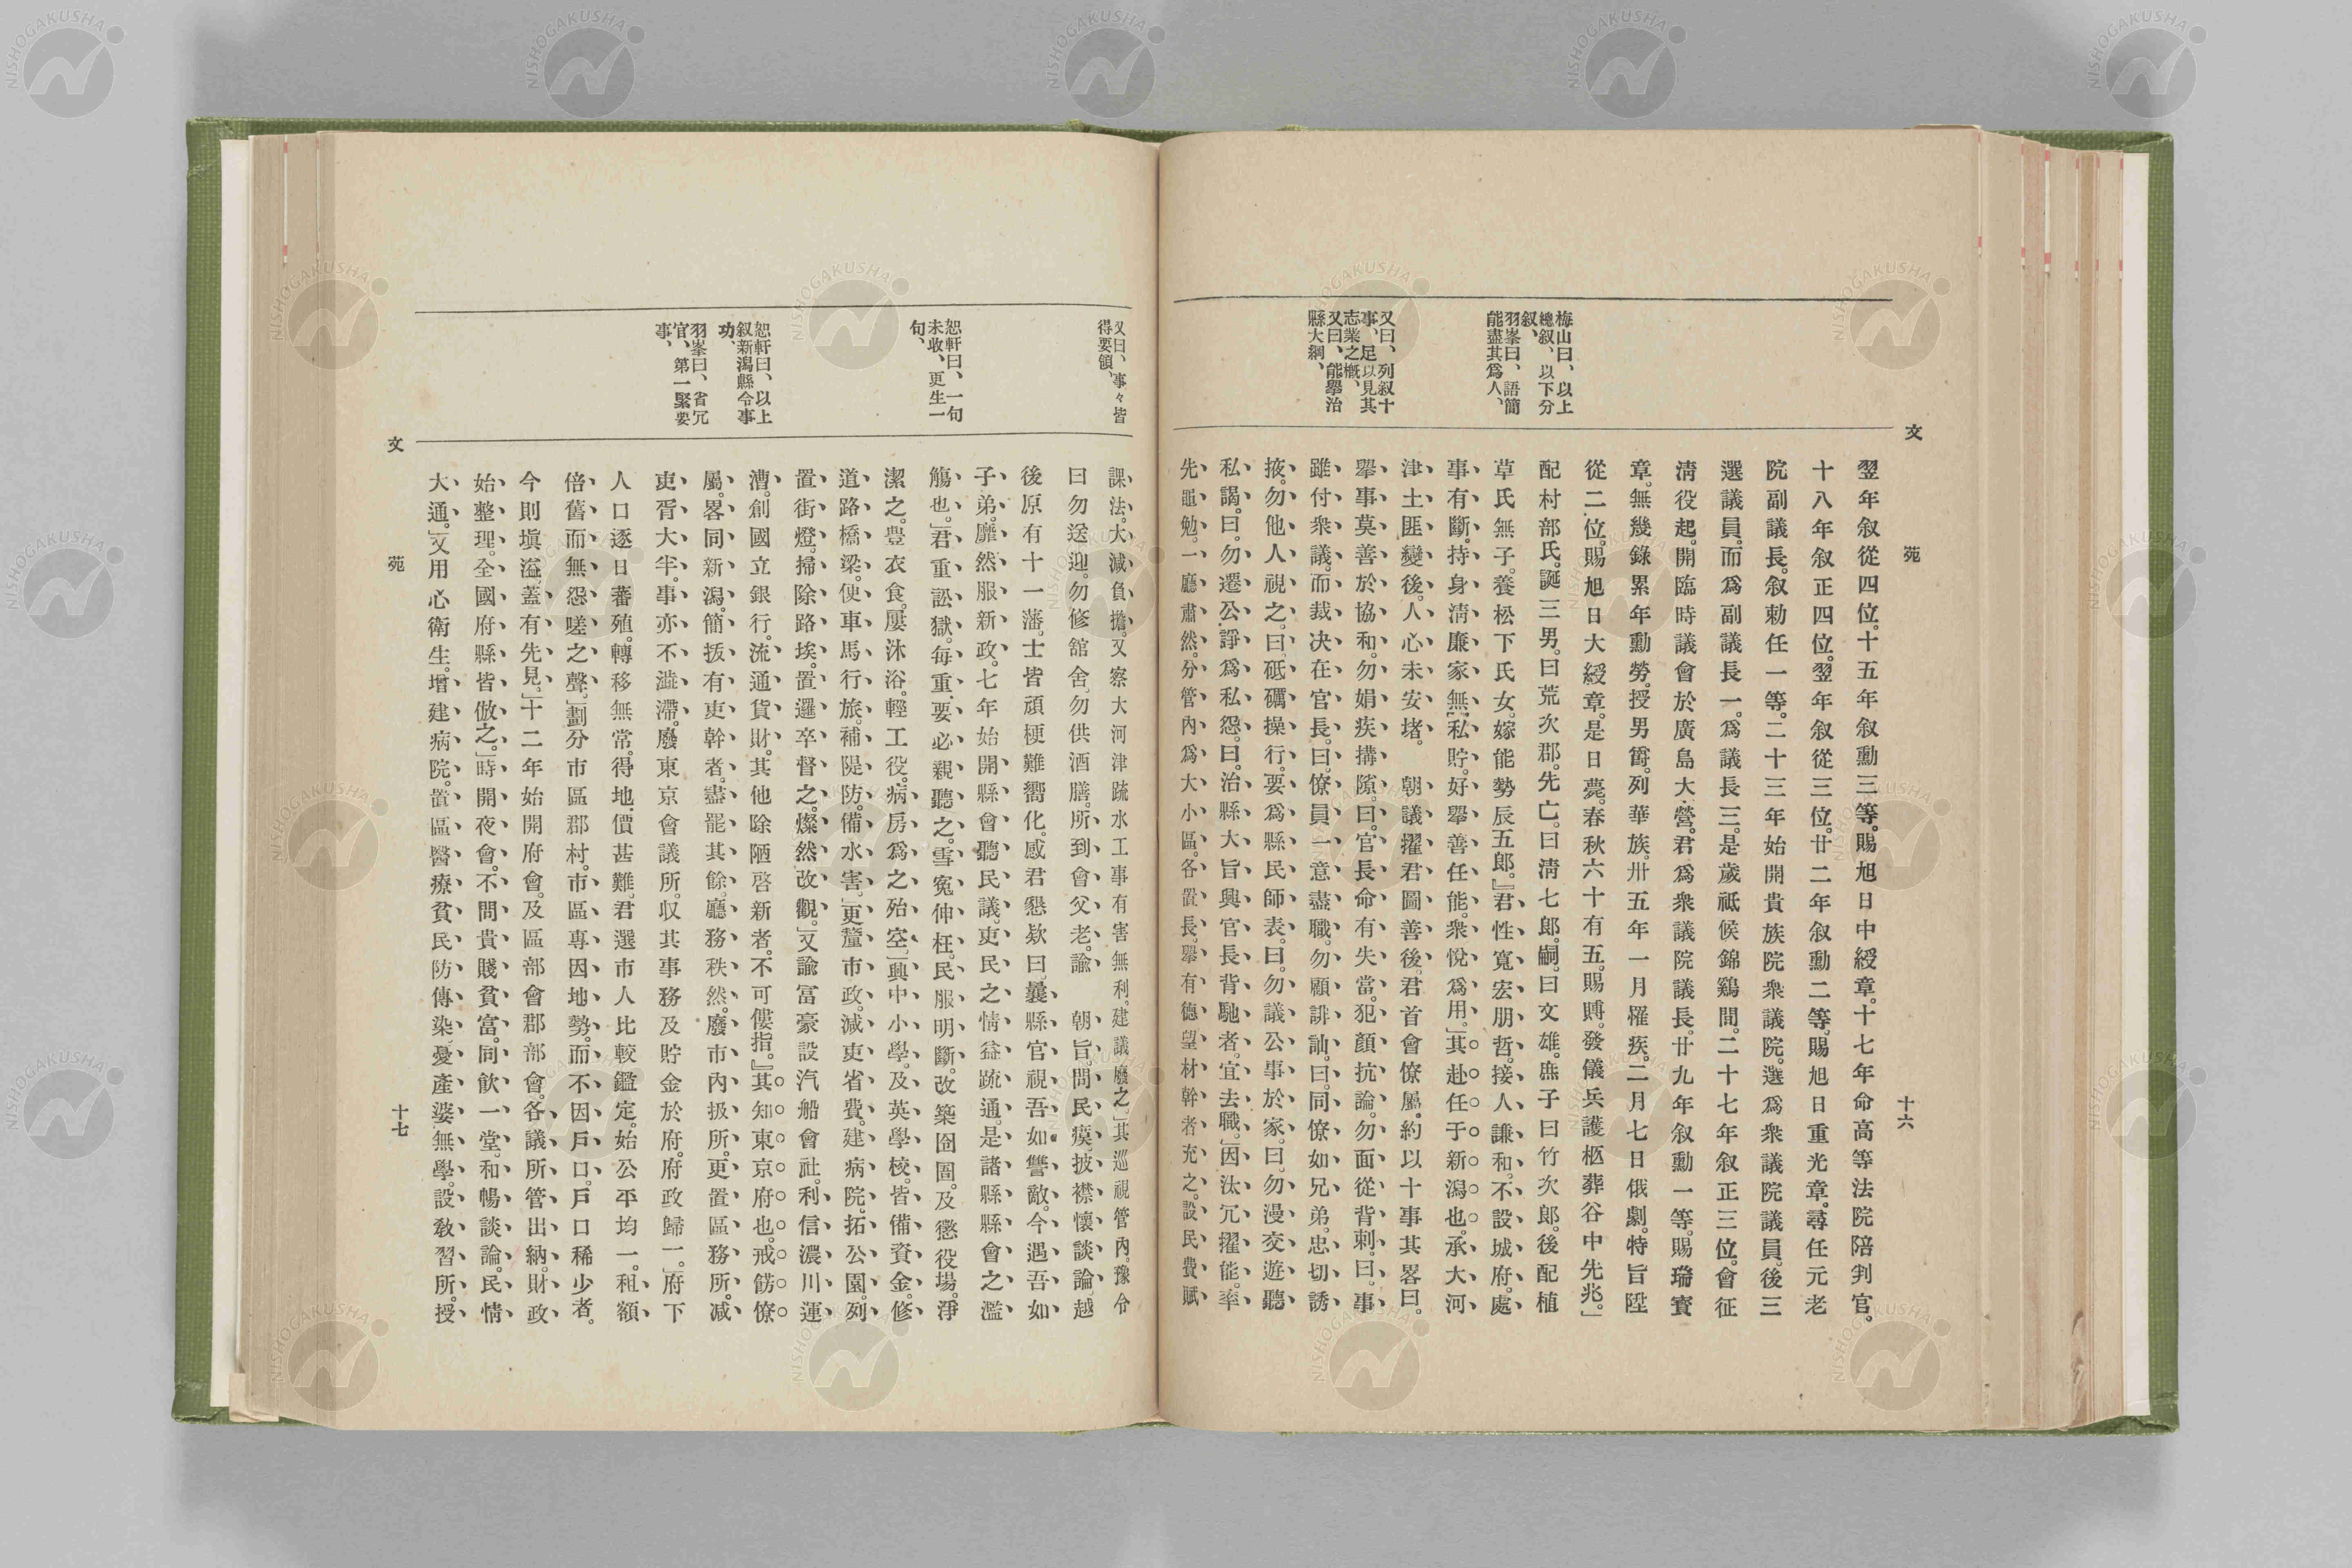 文苑
十六
梅山曰、以上
總叙、以下分
叙、
羽峯曰、語簡
能盡其爲人、
又曰、列叙十
事、足以見其
志業之槪、
又曰、能擧治
縣大綱、
翌年叙從四位。十五年叙勳三等。賜旭日中綬章。十七年命高等法院陪判官。
十八年叙正四位。翌年叙從三位。廿二年叙勳二等。賜旭日重光章。尋任元老
院副議長。叙勅任一等。二十三年始開貴族院衆議院。選爲衆議院議員。後三
選議員。而爲副議長一。爲議長三。是歲祗候錦鷄間。二十七年叙正三位。會征
淸役起。開臨時議會於廣島大營。君爲衆議院議長。廿九年叙勳一等。賜瑞寳
章。無幾錄累年勳勞。授男爵。列華族。卅五年一月罹疾。二月七日俄劇。特旨陞
從二位。賜旭日大綬章。是日薨。春秋六十有五。賜賻。發儀兵護柩葬谷中先兆。」
配村部氏。誕三男。曰荒次郎。先亡。曰淸七郎。嗣。曰文雄。庶子曰竹次郎。後配植
草氏無子。養松下氏女。嫁能勢辰五郎。』君性寬宏朋哲。接人謙和。不設城府。處
事有斷。持身淸廉家無私貯。好擧善任能。衆悅爲用。」其赴任于新潟也。承大河
津土匪變後。人心未安堵。朝議擢君圖善後。君首會僚屬。約以十事其畧曰。
擧事莫善於協和。勿娟疾搆隙。曰。官長命有失當。犯顏抗論。勿面從背刺。曰。事
雖付衆議。而裁決在官長。曰。僚員一意盡職。勿顧誹訕。曰。同僚如兄弟。忠切誘
掖。勿他人視之。曰。砥礪操行。要爲縣民師表。曰。勿議公事於家。曰。勿漫交遊聽
私謁。曰。勿遷公諍爲私怨。曰。治縣大旨興官長背馳者。宜去職。」因汰冗擢能。率
先黽勉。一廳肅然。分管內爲大小區。各置長。擧有德望材幹者充之。設民費賦
又曰、事々皆
得要領、
恕軒曰、一句
未收、更生一
句、
恕軒曰、以上
叙新潟縣令事
功、
羽峯曰、省冗
官、第一緊要
事、
課法。大減負擔。又察大河津疏水工事有害無利。建議廢之。」其巡視管內。豫令
曰勿送迎。勿修舘舍。勿供酒膳。所到會父老。諭朝旨。問民瘼。披襟懷談論。越
後原有十一藩。士皆頑梗難嚮化。感君懇欵曰。曩縣官視吾如讐敵。今遇吾如
子弟。靡然服新政。七年始開縣會聽民議。吏民之情益疏通。是諸縣縣會之濫
觴也。」君重訟獄。每重要必親聽之。雪寃伸枉。民服明斷。改築囹圄。及懲役場。淨
潔之。豊衣食。屢沐浴。輕工役。病房爲之殆空。」興中小學。及英學校。皆備資金。修
道路橋梁。便車馬行旅。補隄防。備水害。」更釐市政。減吏省費。建病院。拓公園。列
置街燈。掃除路埃。置邏卒督之。燦然改觀。」又諭富豪設汽船會社。利信濃川運
漕。創國立銀行。流通貨財。其他除陋啓新者。不可僂指。』其知東京府也。戒飭僚
屬。畧同新潟。簡拔有吏幹者。盡罷其餘。廳務秩然。廢市內扱所。更置區務所。減
吏胥大半。事亦不滋滯。廢東京會議所。収其事務及貯金於府。府政歸一。」府下
人口逐日蕃殖。轉移無常。得地價甚難。君選市人比較鑑定。始公平均一。租額
倍舊而無怨嗟之聲。」劃分市區郡村。市區專因地勢。而不因戶口。戶口稀少者。
今則塡溢。蓋有先見。」十二年始開府會。及區部會郡部會。各議所管出納。財政
始整理。全國府縣皆倣之。」時開夜會。不問貴賤貧富。同飮一堂。和暢談論。民情
大通。」又用心衛生。增建病院。置區醫療貧民防傳染。憂產婆無學。設敎習所。授
文苑
十七